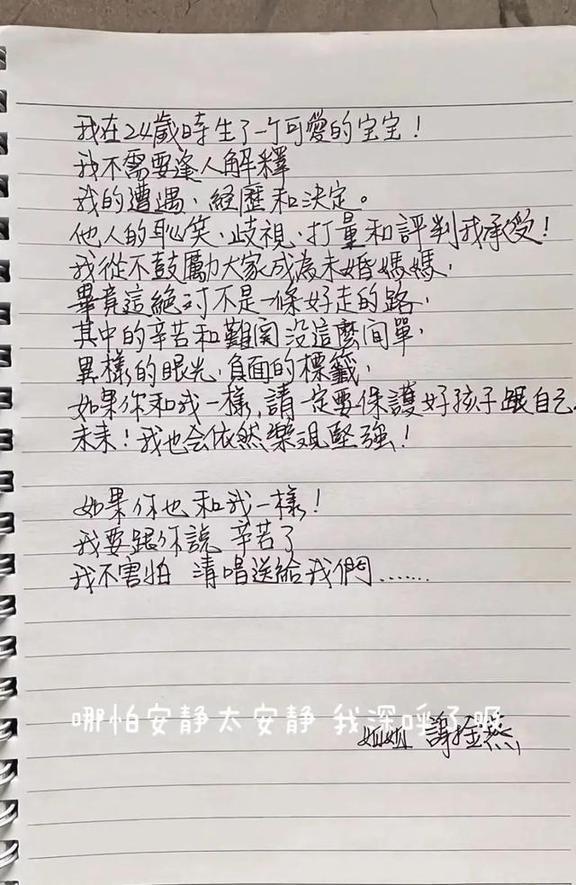 我在24歲時生了一个可愛的宝宝！
我不需要逢人解釋
我的遭遇、經歷和決定。
他人的恥笑、歧視、打量和評判我承受！
我從不鼓勵大家成為未婚媽媽，
畢竟這絕对不是一條好走的路，
其中的辛苦和難関没這麼间單，
異樣的眼光、負面的標籤，
如果你和我一樣，請一定要保護好孩子跟自己。
未来！我也会依然樂观堅強！
如果你也和我一樣！
我要跟你說 辛苦了
我不害怕 清唱送給我們……
哪怕安静太安静 我深呼了吸
姐姐 謝金燕